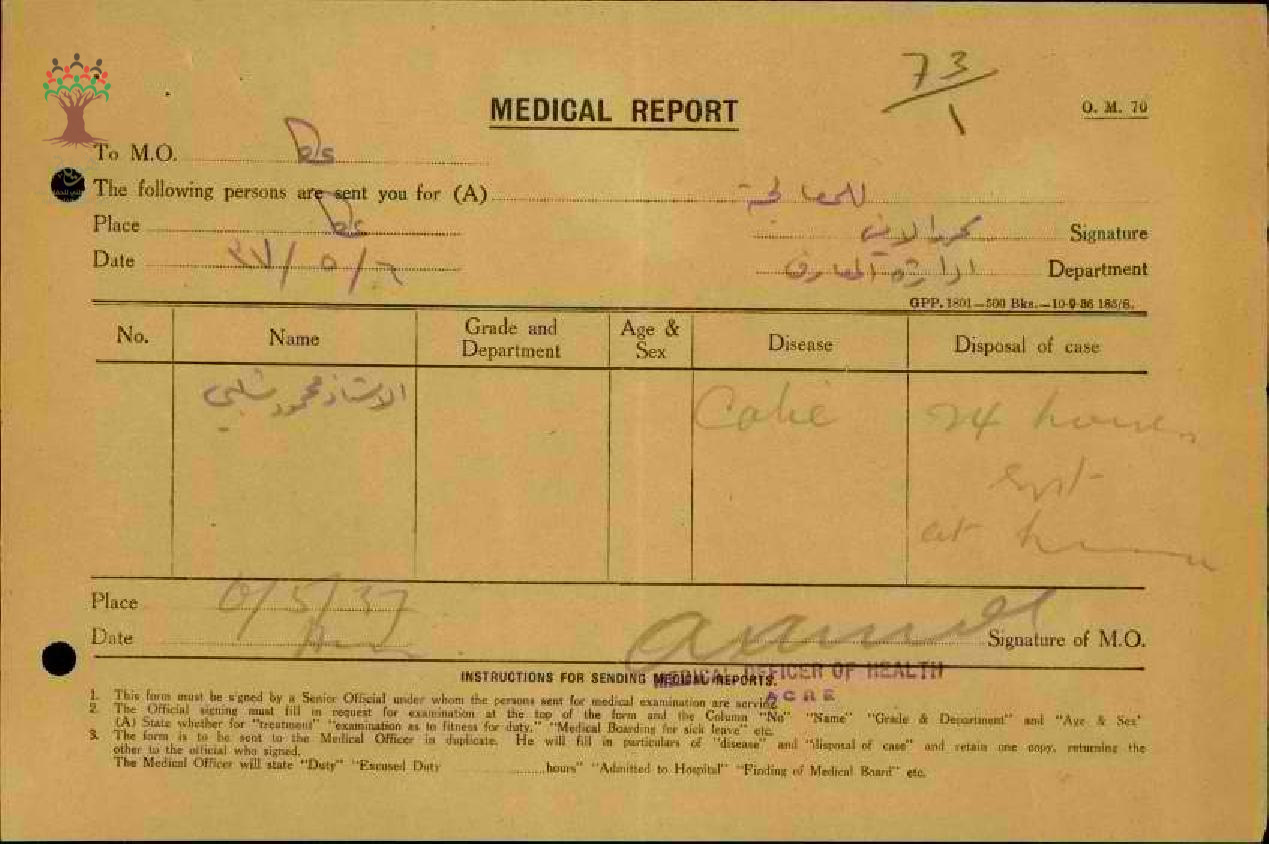 73/1
MEDICAL REPORT
O. M. 70
To M.O. عكا
The following persons are sent you for (A) للمعالجة
Place عكا
Signature
Date ٦/٥/٣٧
ادارة المعارف Department
GPP. 1801—500 Bks.—10-9-36 185/S.
No. Name Grade and Department Age & Sex Disease Disposal of case
الاستاذ محمود شلبي Colic 24 hours
rest
at home
Place 6/5/37
Date
Signature of M.O.
MEDICAL OFFICER OF HEALTH
ACRE
INSTRUCTIONS FOR SENDING MEDICAL REPORTS.
1. This form must be signed by a Senior Official under whom the persons sent for medical examination are serving.
2. The Official signing must fill in request for examination at the top of the form and the Column "No" "Name" "Grade & Department" and "Age & Sex'
(A) State whether for "treatment" "examination as to fitness for duty." "Medical Boarding for sick leave" etc.
3. The form is to be sent to the Medical Officer in duplicate. He will fill in particulars of "disease" and "disposal of case" and retain one copy, returning the
other to the official who signed.
The Medical Officer will state "Duty" "Excused Duty ............hours" "Admitted to Hospital" "Finding of Medical Board" etc.